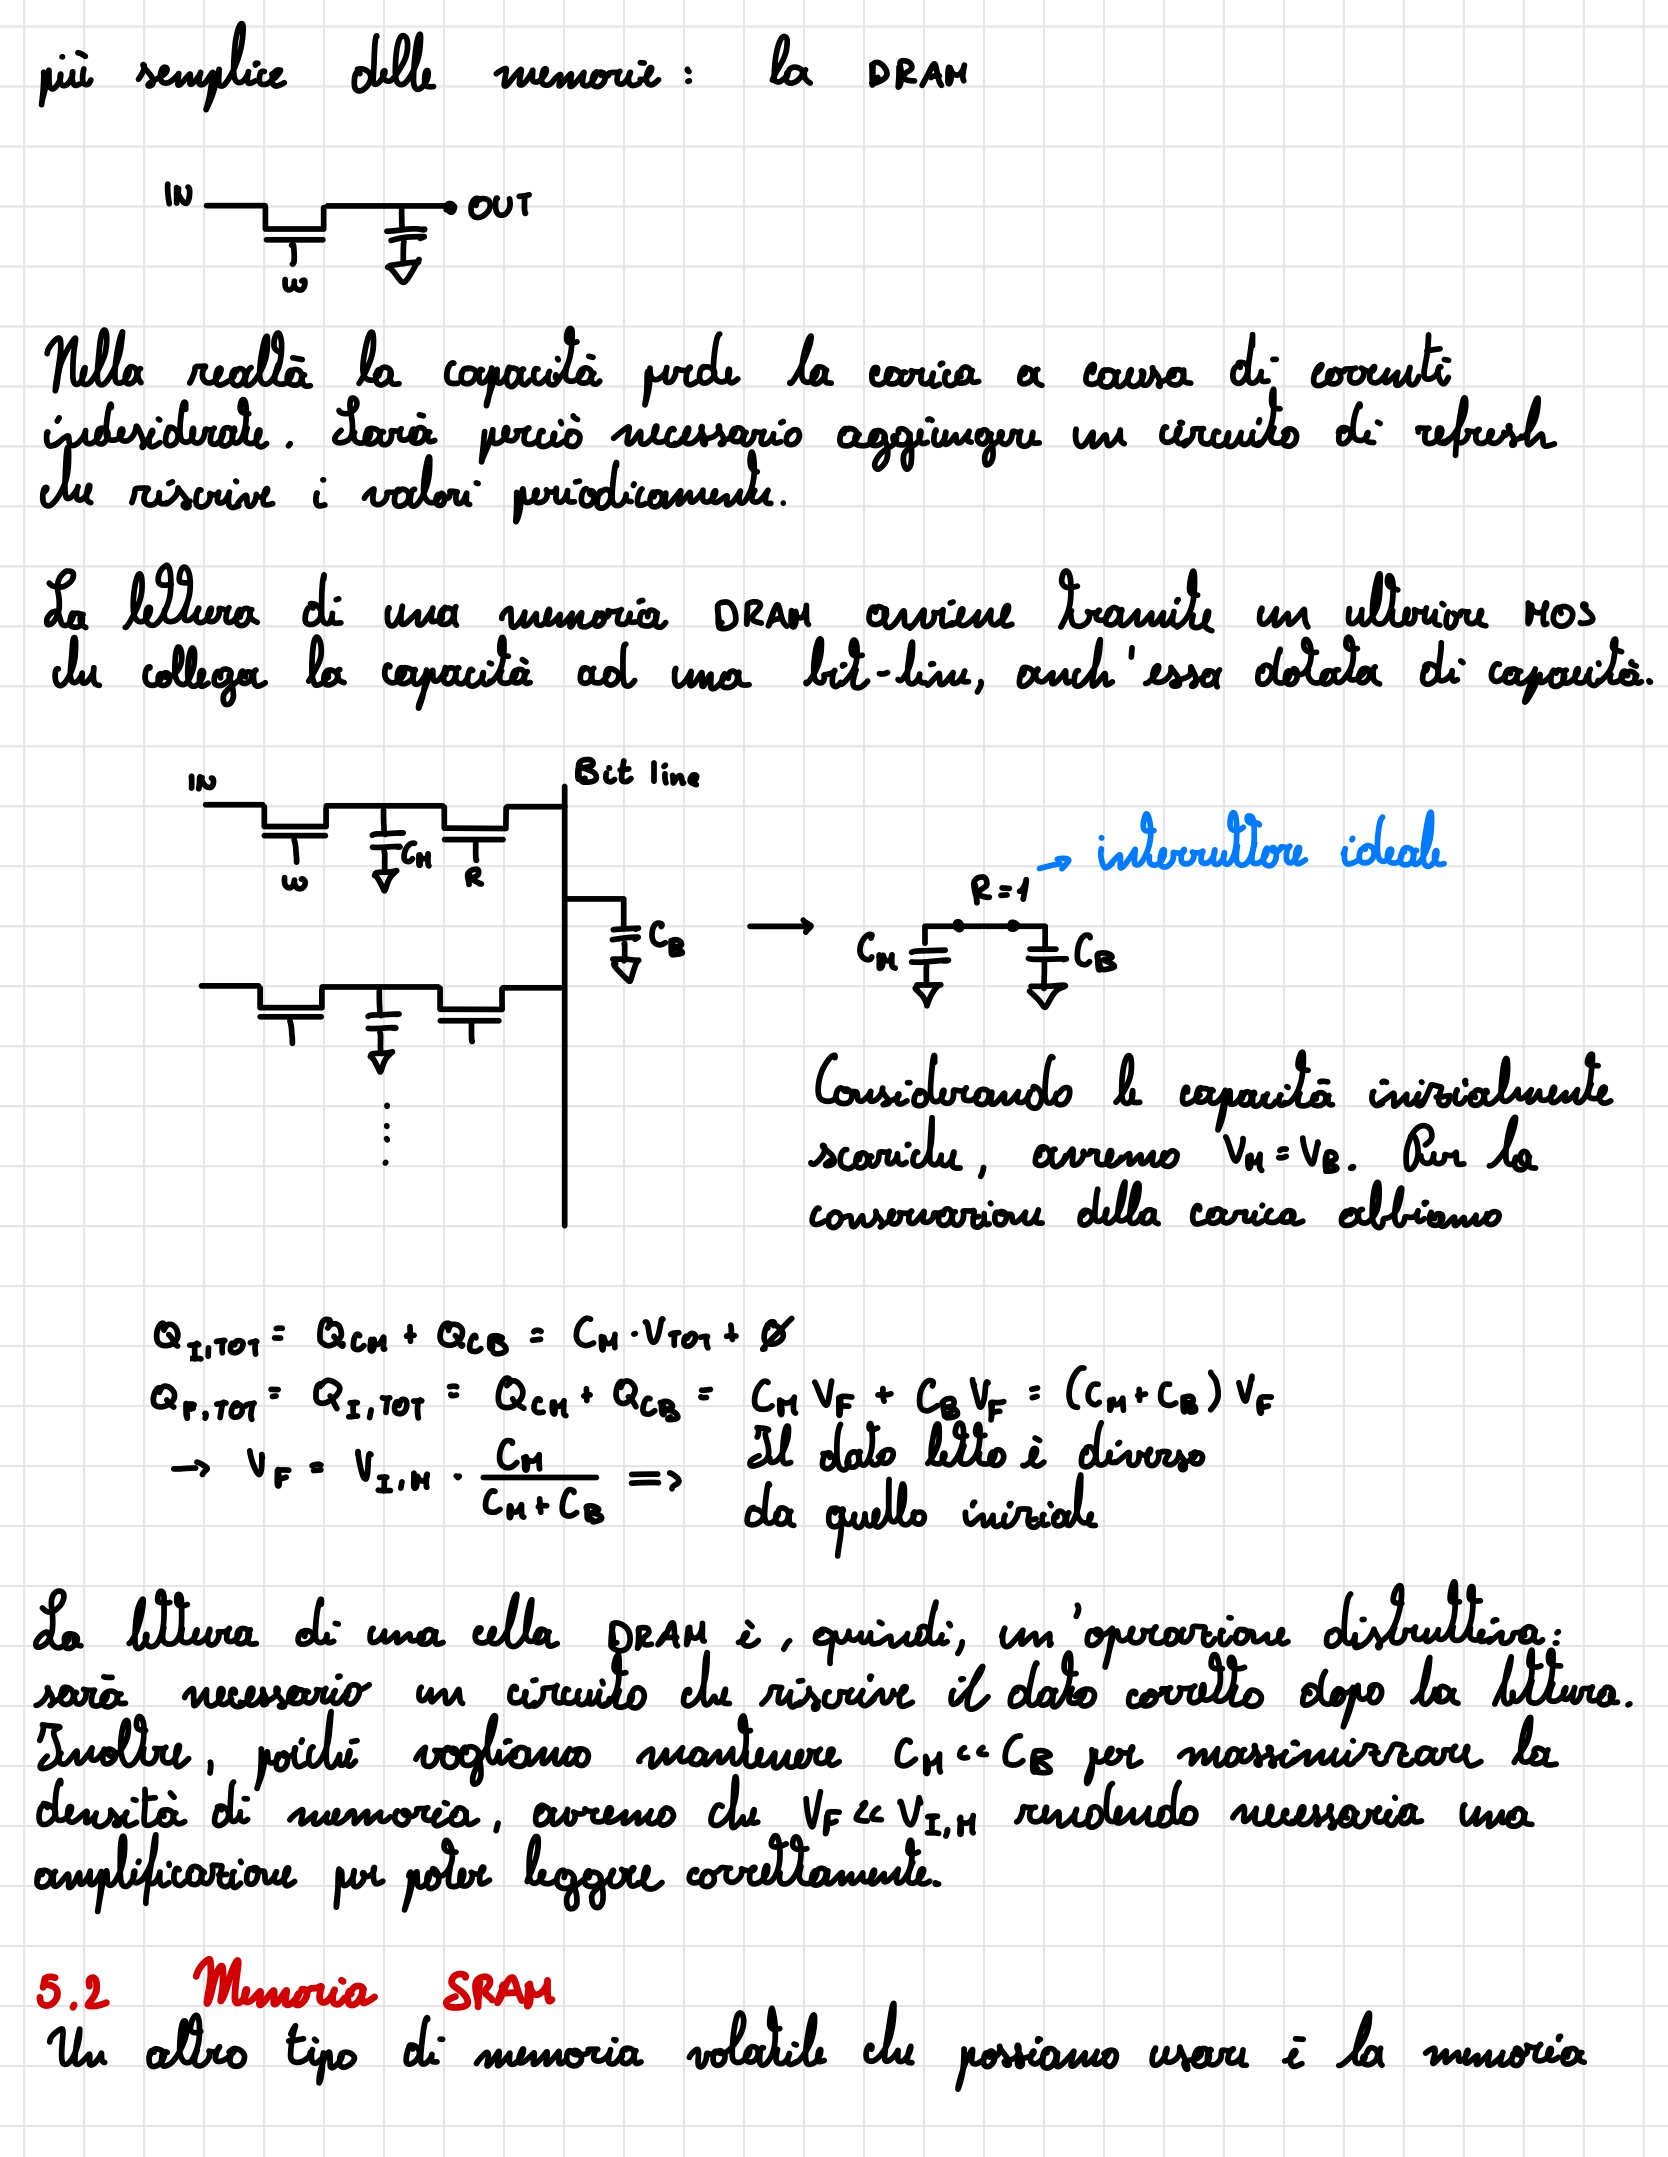 più semplice delle memorie: la DRAM
IN
OUT
W
Nella realtà la capacità perde la carica a causa di correnti
indesiderate. Sarà perciò necessario aggiungere un circuito di refresh
che riscrive i valori periodicamente.
La lettura di una memoria DRAM avviene tramite un ulteriore MOS
che collega la capacità ad una bit-line, anch'essa dotata di capacità.
IN
Bit line
W
C_M
R
C_B
→ interruttore ideale
R=1
→
C_M
C_B
Considerando le capacità inizialmente
scariche, avremo V_M = V_B. Per la
conservazione della carica abbiamo
Q_I,TOT = Q_CM + Q_CB = C_M · V_TOT + Ø
Q_F,TOT = Q_I,TOT = Q_CM + Q_CB = C_M V_F + C_B V_F = (C_M + C_B) V_F
→ V_F = V_I,M · C_M / (C_M + C_B) ⟹ Il dato letto è diverso
da quello iniziale
La lettura di una cella DRAM è, quindi, un'operazione distruttiva:
sarà necessario un circuito che riscrive il dato corretto dopo la lettura.
Inoltre, poiché vogliamo mantenere C_M << C_B per massimizzare la
densità di memoria, avremo che V_F << V_I,M rendendo necessaria una
amplificazione per poter leggere correttamente.
5.2 Memoria SRAM
Un altro tipo di memoria volatile che possiamo usare è la memoria